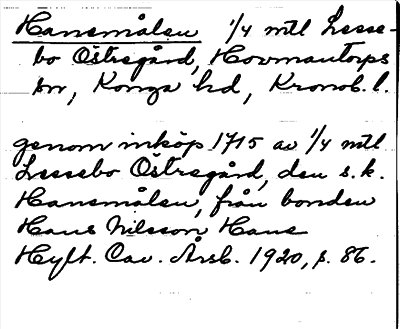 Hansmålen 1/4 mtl Lesse-
bo Östregård, Hovmantorps
sn, Konga hd, Kronob. l.
genom inköp 1715 av 1/4 mtl
Lessebo Östregård, den s.k.
Hansmålen, från bonden
Hans Nilsson Hans
Hylt. Cav. Årsb. 1920, s. 86.